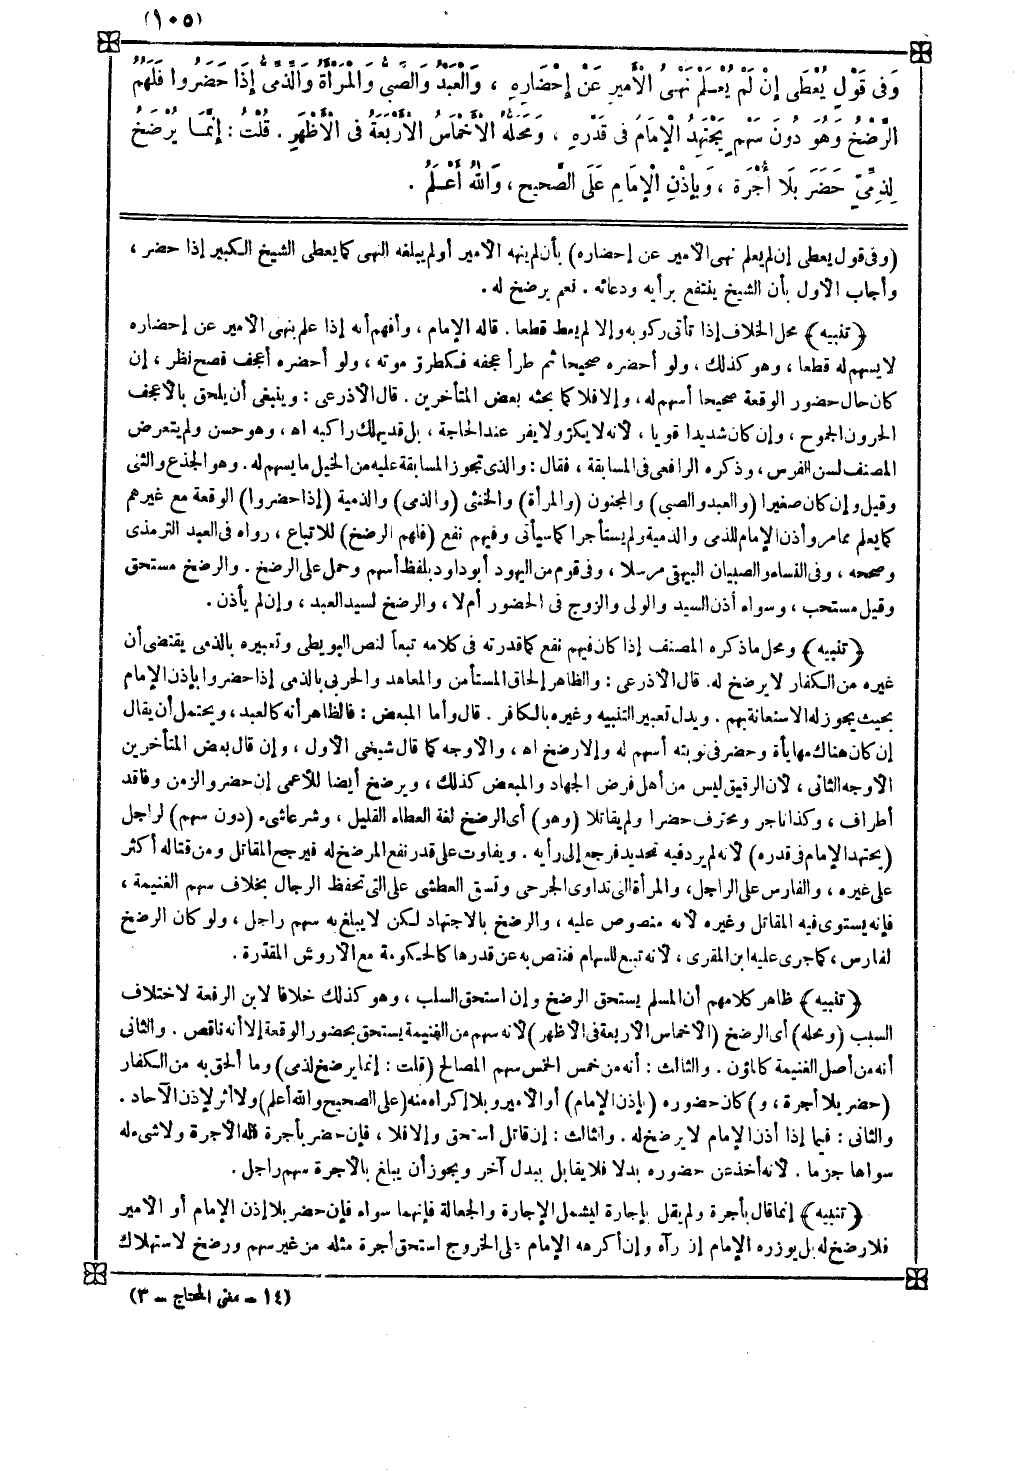 (١٠٥)
وَفِى قَوْلٍ يُعْطَى إِنْ لَمْ يُعْلَمْ نَهْىُ الْأَمِيرِ عَنْ إِحْضَارِهِ ، وَالْعَبْدُ وَالصَّبِىُّ وَالْمَرْأَةُ وَالذِّمِّىُّ إِذَا حَضَرُوا فَلَهُمُ
الرَّضْخُ وَهُوَ دُونَ سَهْمٍ يَجْتَهِدُ الْإِمَامُ فِى قَدْرِهِ ، وَمَحَلُّهُ الْأَخْمَاسُ الْأَرْبَعَةُ فِى الْأَظْهَرِ . قُلْتُ : إِنَّمَا يُرْضَخُ
لِذِمِّىٍّ حَضَرَ بِلَا أُجْرَةٍ ، وَبِإِذْنِ الْإِمَامِ عَلَى الصَّحِيحِ ، وَاللهُ أَعْلَمُ .
(وفى قول يعطى إن لم يعلم نهى الأمير عن إحضاره) بأن لم ينهه الأمير أو لم يبلغه النهى كما يعطى الشيخ الكبير إذا حضر ،
وأجاب الأول بأن الشيخ ينتفع برأيه ودعائه . نعم يرضخ له .
﴿تنبيه﴾ محل الخلاف إذا تأتى ركوبه وإلا لم يعط قطعا . قاله الإمام ، وأفهم أنه إذا علم بنهى الأمير عن إحضاره
لا يسهم له قطعا ، وهو كذلك ، ولو أحضره صحيحا ثم طرأ عجفه فكطرق موته ، ولو أحضره أعجف فصح نظر ، إن
كان حال حضور الوقعة صحيحا أسهم له ، وإلا فلا كما بحثه بعض المتأخرين . قال الأذرعى : وينبغى أن يلحق بالأعجف
الحرون الجموح ، وإن كان شديدا قويا ، لأنه لا يكرّ ولا يفر عند الحاجة ، بل قد يهلك راكبه اه ، وهو حسن ولم يتعرض
المصنف لسن الفرس ، وذكره الرافعى فى المسابقة ، فقال : والذى تجوز المسابقة عليه من الخيل ما يسهم له . وهو الجذع والثنى
وقيل وإن كان صغيرا (والعبد والصبى) والمجنون (والمرأة) والخنثى (والذمى) والذمية (إذا حضروا) الوقعة مع غيرهم
كما يعلم مما مر وأذن الإمام للذمى والذمية ولم يستأجرا كما سيأتى وفيهم نفع (فلهم الرضخ) للاتباع ، رواه فى العبد الترمذى
وصححه ، وفى النساء والصبيان البيهقى مرسلا ، وفى قوم من اليهود أبو داود بلفظ أسهم وحمل على الرضخ . والرضخ مستحق
وقيل مستحب ، وسواء أذن السيد والولى والزوج فى الحضور أم لا ، والرضخ لسيد العبد ، وإن لم يأذن .
﴿تنبيه﴾ ومحل ما ذكره المصنف إذا كان فيهم نفع كما قدرته فى كلامه تبعاً لنص البويطى وتعبيره بالذمى يقتضى أن
غيره من الكفار لا يرضخ له. قال الأذرعى : والظاهر إلحاق المستأمن والمعاهد والحربى بالذمى إذا حضروا بإذن الإمام
بحيث يجوز له الاستعانة بهم . ويدل تعبير التنبيه وغيره بالكافر . قال وأما المبعض : فالظاهر أنه كالعبد ، ويحتمل أن يقال
إن كان هناك مهايأة وحضر فى نوبته أسهم له وإلا رضخ اه ، والأوجه كما قال شيخى الأول ، وإن قال بعض المتأخرين
الأوجه الثانى ، لأن الرقيق ليس من أهل فرض الجهاد والمبعض كذلك ، ويرضخ أيضا للأعمى إن حضر والزمن وفاقد
أطراف ، وكذا تاجر ومحترف حضرا ولم يقاتلا (وهو) أى الرضخ لغة العطاء القليل ، وشرعا شىء (دون سهم) لراجل
(يجتهد الإمام فى قدره) لأنه لم يرد فيه تحديد فرجع إلى رأيه . ويفاوت على قدر نفع المرضخ له فيرجح المقاتل ومن قتاله أكثر
على غيره ، والفارس على الراجل، والمرأة التى تداوى الجرحى وتسقى العطشى على التى تحفظ الرجال بخلاف سهم الغنيمة ،
فإنه يستوى فيه المقاتل وغيره لأنه منصوص عليه ، والرضخ بالاجتهاد لكن لا يبلغ به سهم راجل ، ولو كان الرضخ
لفارس ، كما جرى عليه ابن المقرى ، لأنه تبع للسهام فنقص به عن قدرها كالحكومة مع الأروش المقدّرة .
﴿تنبيه﴾ ظاهر كلامهم أن المسلم يستحق الرضخ وإن استحق السلب ، وهو كذلك خلافا لابن الرفعة لاختلاف
السبب (ومحله) أى الرضخ (الأخماس الأربعة فى الأظهر) لأنه سهم من الغنيمة يستحق بحضور الوقعة إلا أنه ناقص . والثانى
أنه من أصل الغنيمة كالمؤن . والثالث : أنه من خمس الخمس سهم المصالح (قلت : إنما يرضخ لذمى) وما ألحق به من الكفار
(حضر بلا أجرة ، و) كان حضوره (بإذن الإمام) أو الأمير وبلا إكراه منه (على الصحيح والله أعلم) ولا أثر لإذن الآحاد .
والثانى : فيما إذا أذن الإمام لا يرضخ له . والثالث : إن قاتل استحق وإلا فلا ، فإن حضر بأجرة فله الأجرة ولا شىء له
سواها جزما . لأنه أخذ عن حضوره بدلا فلا يقابل ببدل آخر ويجوز أن يبلغ بالأجرة سهم راجل .
﴿تنبيه﴾ إنما قال بأجرة ولم يقل بإجارة ليشمل الإجارة والجعالة فإنهما سواء فإن حضر بلا إذن الإمام أو الأمير
فلا رضخ له بل يوزره الإمام إن رآه وإن أكرهه الإمام على الخروج استحق أجرة مثله من غير سهم ورضخ لاستهلاك
(١٤ – مغنى المحتاج – ٣)